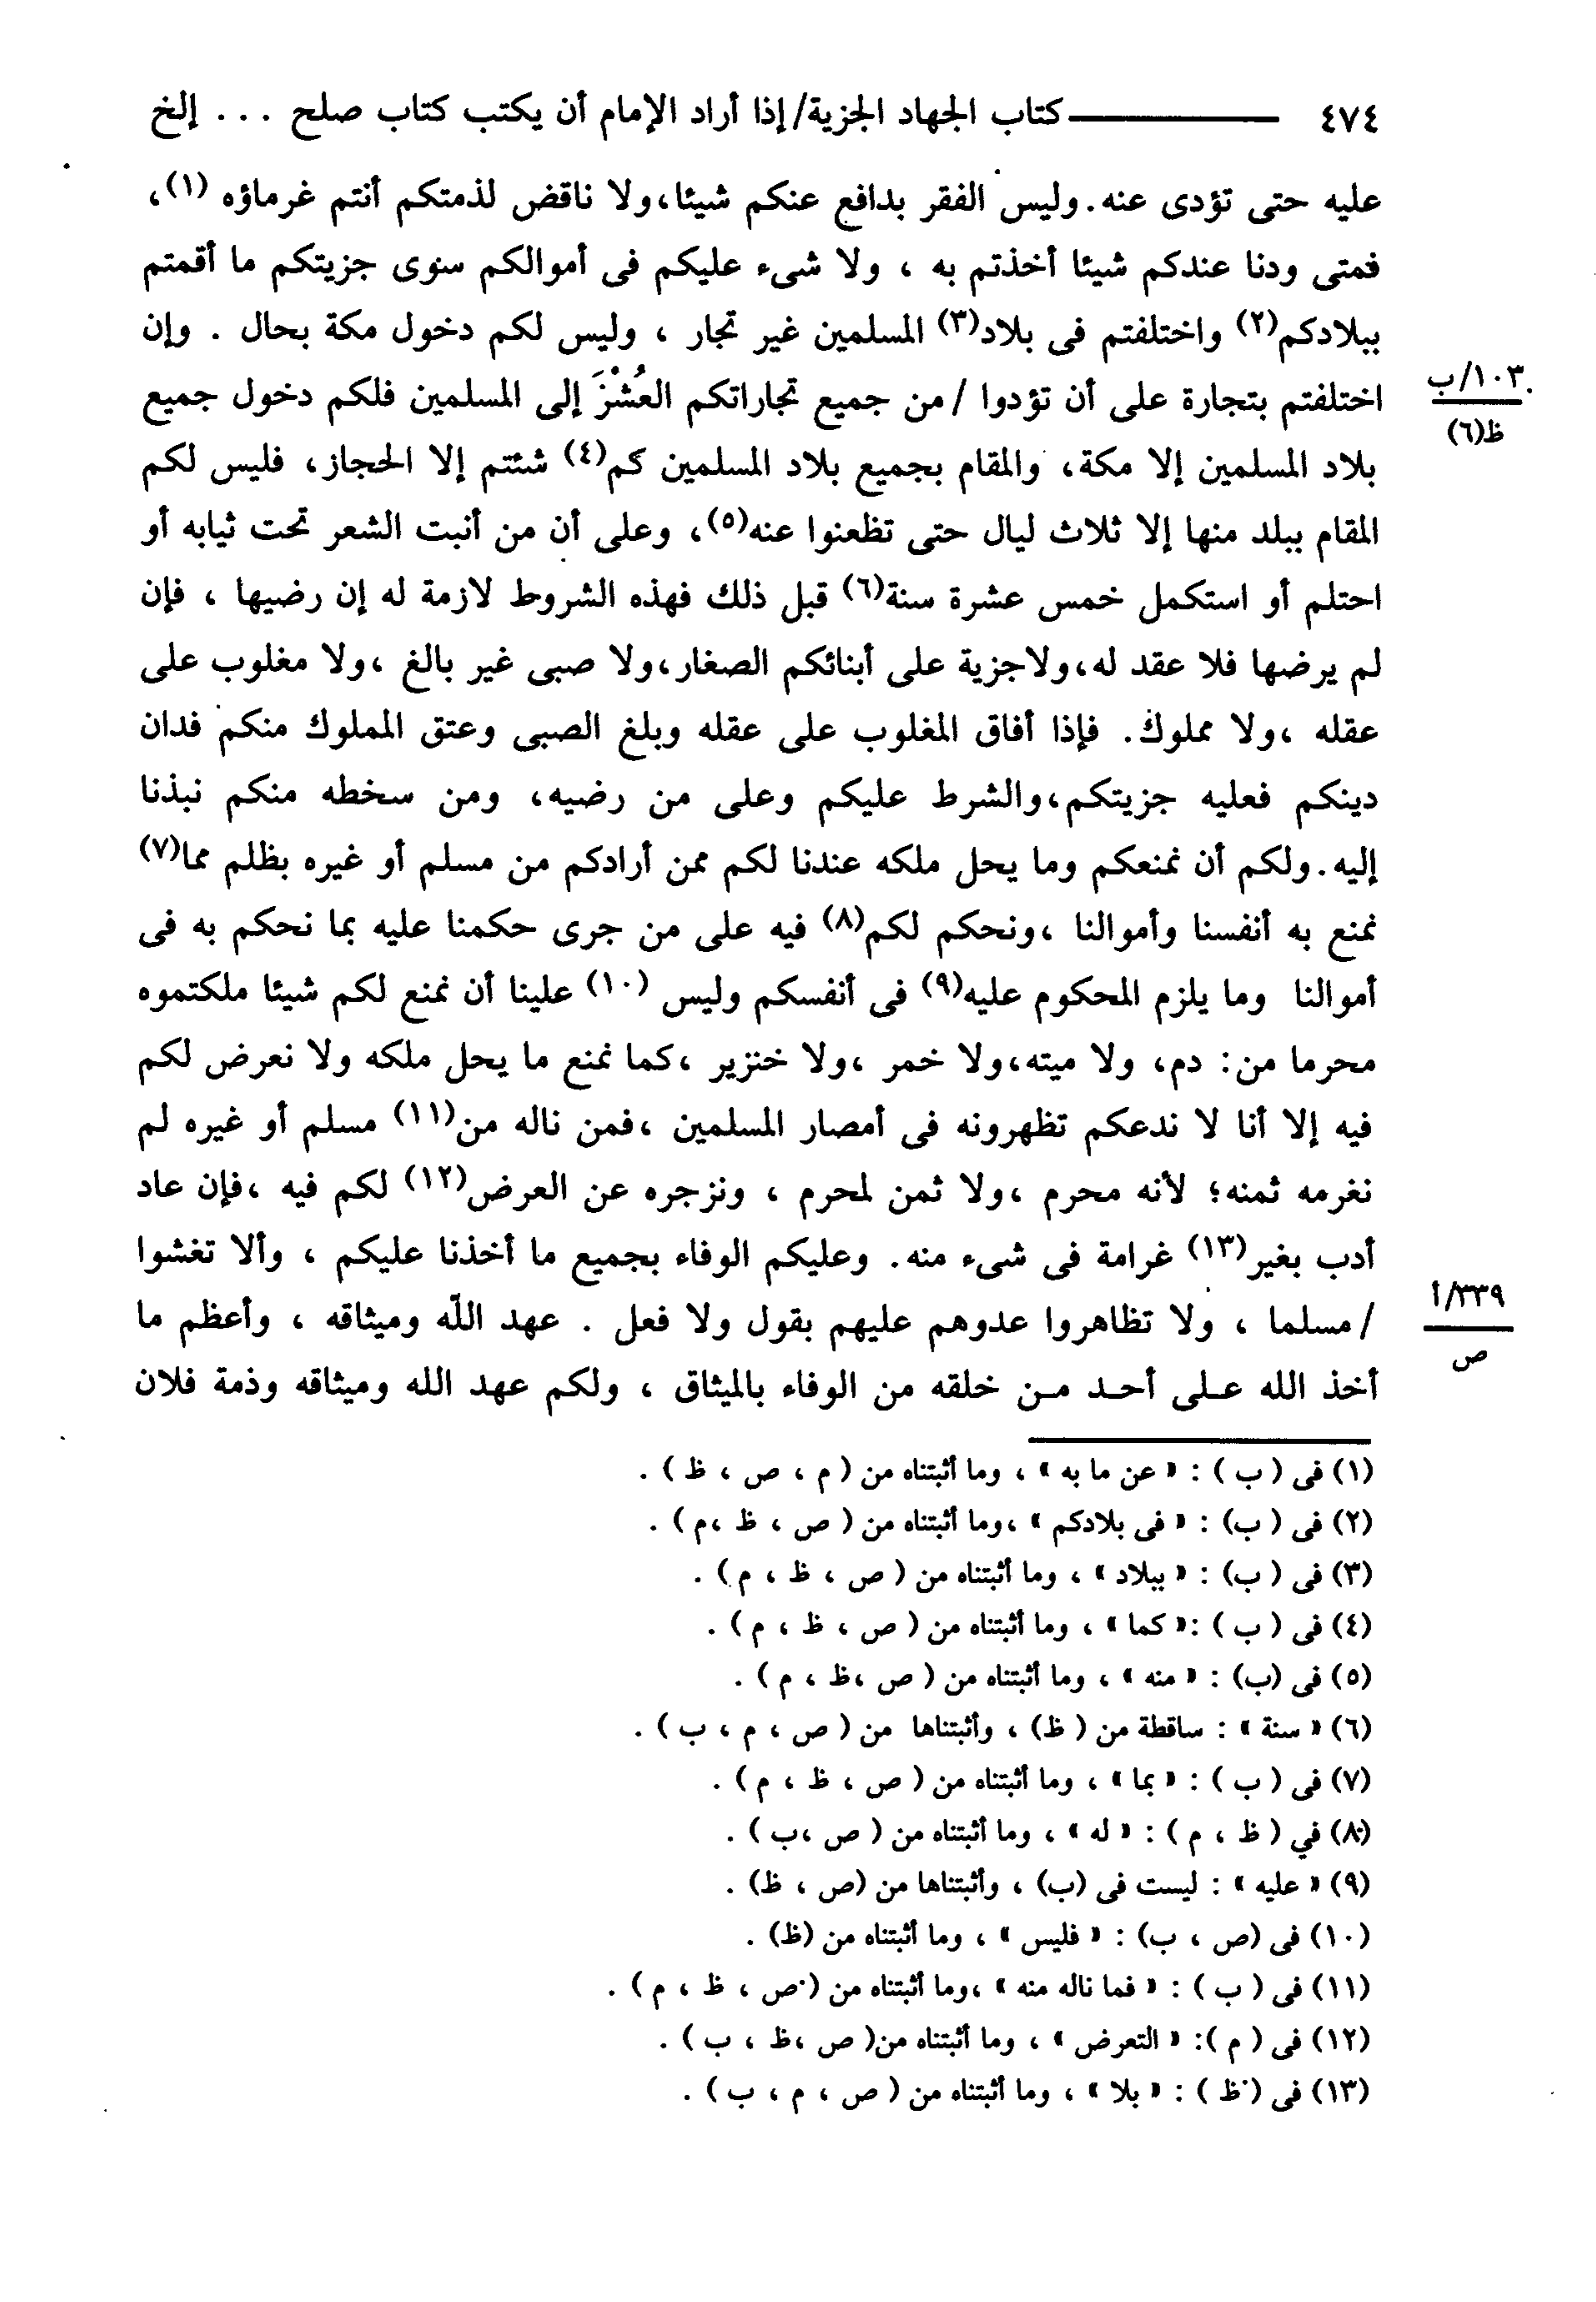 ٤٧٤ ــــــــ كتاب الجهاد الجزية/إذا أراد الإمام أن يكتب كتاب صلح . . . إلخ
عليه حتى تؤدى عنه. وليس الفقر بدافع عنكم شيئا، ولا ناقض لذمتكم أنتم غرماؤه (١)،
فمتى ودنا عندكم شيئا أخذتم به ، ولا شىء عليكم فى أموالكم سوى جزيتكم ما أقمتم
ببلادكم(٢) واختلفتم فى بلاد(٣) المسلمين غير تجار ، وليس لكم دخول مكة بحال . وإن
اختلفتم بتجارة على أن تؤدوا /من جميع تجاراتكم العُشْرَ إلى المسلمين فلكم دخول جميع
١٠٣/ب
ظ(٦)
بلاد المسلمين إلا مكة، والمقام بجميع بلاد المسلمين كم(٤) شئتم إلا الحجاز، فليس لكم
المقام ببلد منها إلا ثلاث ليال حتى تظعنوا عنه(٥)، وعلى أن من أنبت الشعر تحت ثيابه أو
احتلم أو استكمل خمس عشرة سنة(٦) قبل ذلك فهذه الشروط لازمة له إن رضيها ، فإن
لم يرضها فلا عقد له، ولاجزية على أبنائكم الصغار، ولا صبى غير بالغ ، ولا مغلوب على
عقله ، ولا مملوك. فإذا أفاق المغلوب على عقله وبلغ الصبى وعتق المملوك منكم فدان
دينكم فعليه جزيتكم، والشرط عليكم وعلى من رضيه، ومن سخطه منكم نبذنا
إليه. ولكم أن نمنعكم وما يحل ملكه عندنا لكم ممن أرادكم من مسلم أو غيره بظلم مما(٧)
نمنع به أنفسنا وأموالنا ، ونحكم لكم(٨) فيه على من جرى حكمنا عليه بما نحكم به فى
أموالنا وما يلزم المحكوم عليه(٩) فى أنفسكم وليس (١٠) علينا أن نمنع لكم شيئا ملكتموه
محرما من: دم، ولا ميته، ولا خمر ، ولا خنزير ، كما نمنع ما يحل ملكه ولا نعرض لكم
فيه إلا أنا لا ندعكم تظهرونه فى أمصار المسلمين ، فمن ناله من(١١) مسلم أو غيره لم
نغرمه ثمنه؛ لأنه محرم ، ولا ثمن لمحرم ، ونزجره عن العرض(١٢) لكم فيه ، فإن عاد
أدب بغير(١٣) غرامة فى شىء منه. وعليكم الوفاء بجميع ما أخذنا عليكم ، وألا تغشوا
/مسلما ، ولا تظاهروا عدوهم عليهم بقول ولا فعل . عهد اللّه وميثاقه ، وأعظم ما
٣٣٩/أ
ص
أخذ الله عـلى أحـد مـن خلقه من الوفاء بالميثاق ، ولكم عهد الله وميثاقه وذمة فلان
(١) فى ( ب ) : « عن ما به » ، وما أثبتناه من ( م ، ص ، ظ ) .
(٢) فى ( ب) : « فى بلادكم » ، وما أثبتناه من ( ص ، ظ ، م ) .
(٣) فى ( ب) : « ببلاد » ، وما أثبتناه من ( ص ، ظ ، م ) .
(٤) فى ( ب ) : « كما » ، وما أثبتناه من ( ص ، ظ ، م ) .
(٥) فى (ب) : « منه » ، وما أثبتناه من ( ص ، ظ ، م ) .
(٦) « سنة » : ساقطة من ( ظ) ، وأثبتناها من ( ص ، م ، ب ) .
(٧) فى ( ب ) : « بما » ، وما أثبتناه من ( ص ، ظ ، م ) .
(٨) في ( ظ ، م ) : « له » ، وما أثبتناه من ( ص ، ب ) .
(٩) « عليه » : ليست فى (ب) ، وأثبتناها من (ص ، ظ) .
(١٠) فى (ص ، ب) : « فليس » ، وما أثبتناه من (ظ) .
(١١) فى ( ب ) : « فما ناله منه » ، وما أثبتناه من ( ص ، ظ ، م ) .
(١٢) فى ( م ): « التعرض » ، وما أثبتناه من( ص ، ظ ، ب ) .
(١٣) فى ( ظ ) : « بلا » ، وما أثبتناه من ( ص ، م ، ب ) .